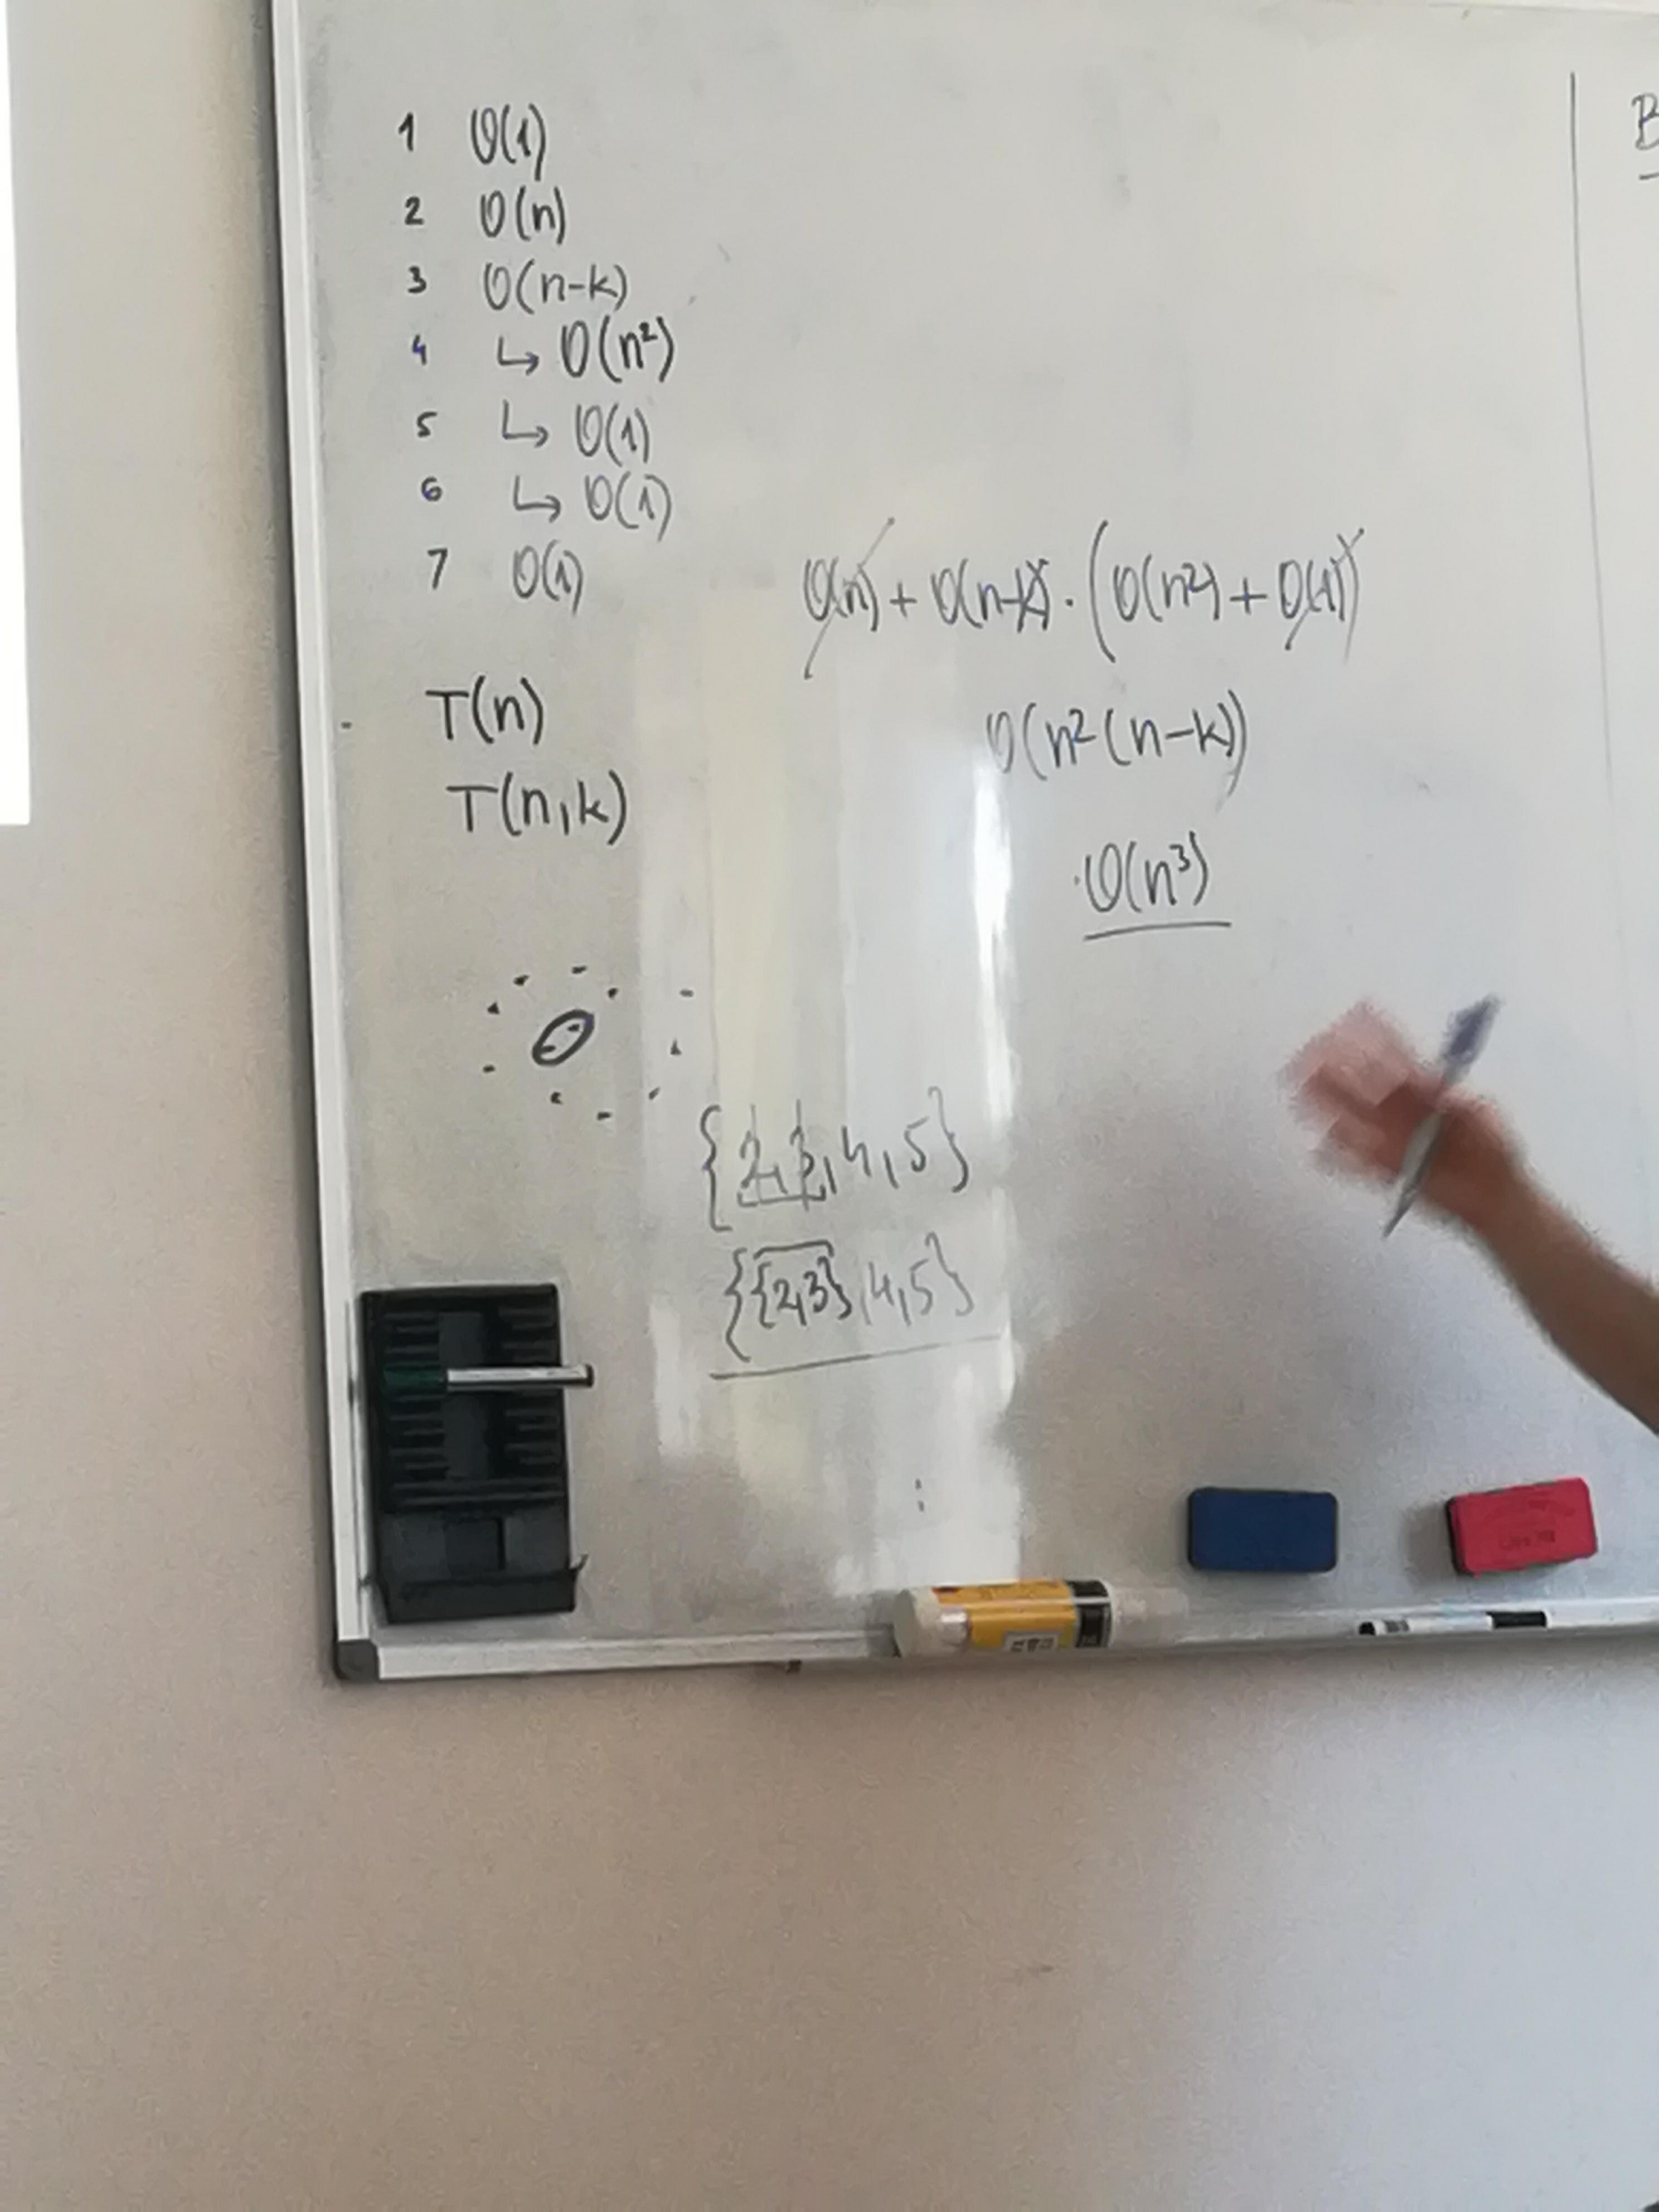 1 O(1)
2 O(n)
3 O(n-k)
4 ↳ O(n²)
5 ↳ O(1)
6 ↳ O(1)
7 O(1)
O(n) + O(n-k) · (O(n²) + O(1))
O(n²(n-k))
O(n³)
T(n)
T(n,k)
{2,3,4,5}
{{2,3},4,5}
B